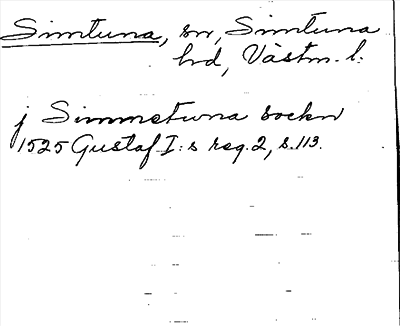 Simtuna, sn, Simtuna
hd, Västm. l.
j Simmetwna sockn
1525 Gustaf I:s reg. 2, s. 113.